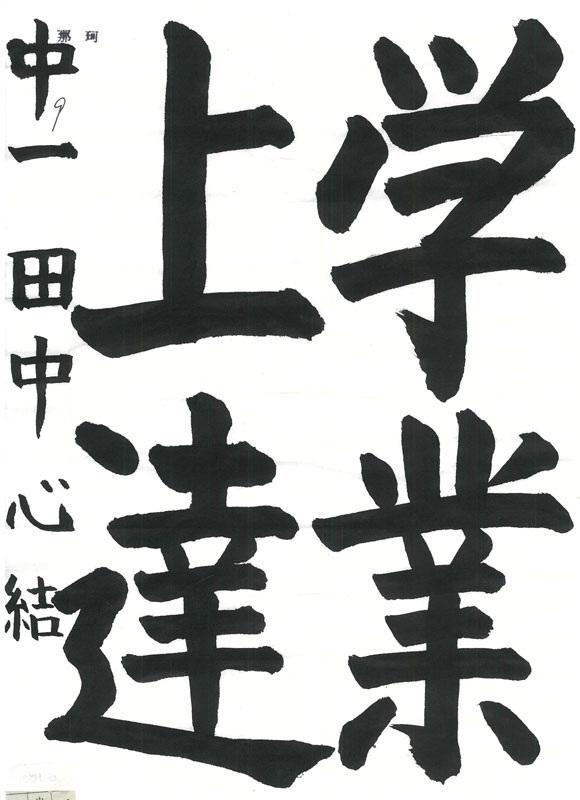 学業
上達
那珂
中一 田中心結
9